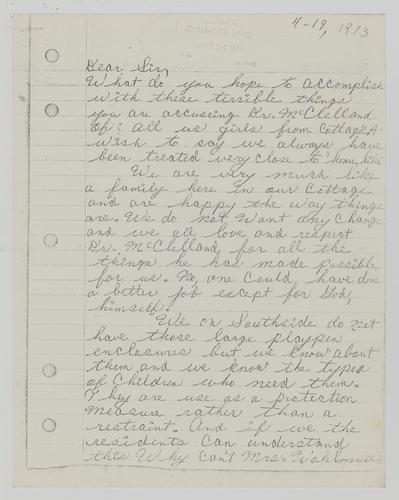 4-19, 1973
Dear Sir,
What do you hope to accomplish
with these terrible things
you are accuseing Dr. McClelland
of? All us girls from Cottage A
wish to say we always have
been treated very close to home, like
We are very mush like
a family here in our Cottage
and are happy the way things
are. We do not want any change
and we all love and respect
Dr. McClelland, for all the
things he has made possible
for us. No, one could, have done
a better job except for God,
himself.
We on Southside do not
have those large playpen
enclosures but we know about
them and we know the types
of Children who need them.
They are use as a protection
measure rather than a
restraint. And if we the
residents can understand
this Why Can't Mrs.